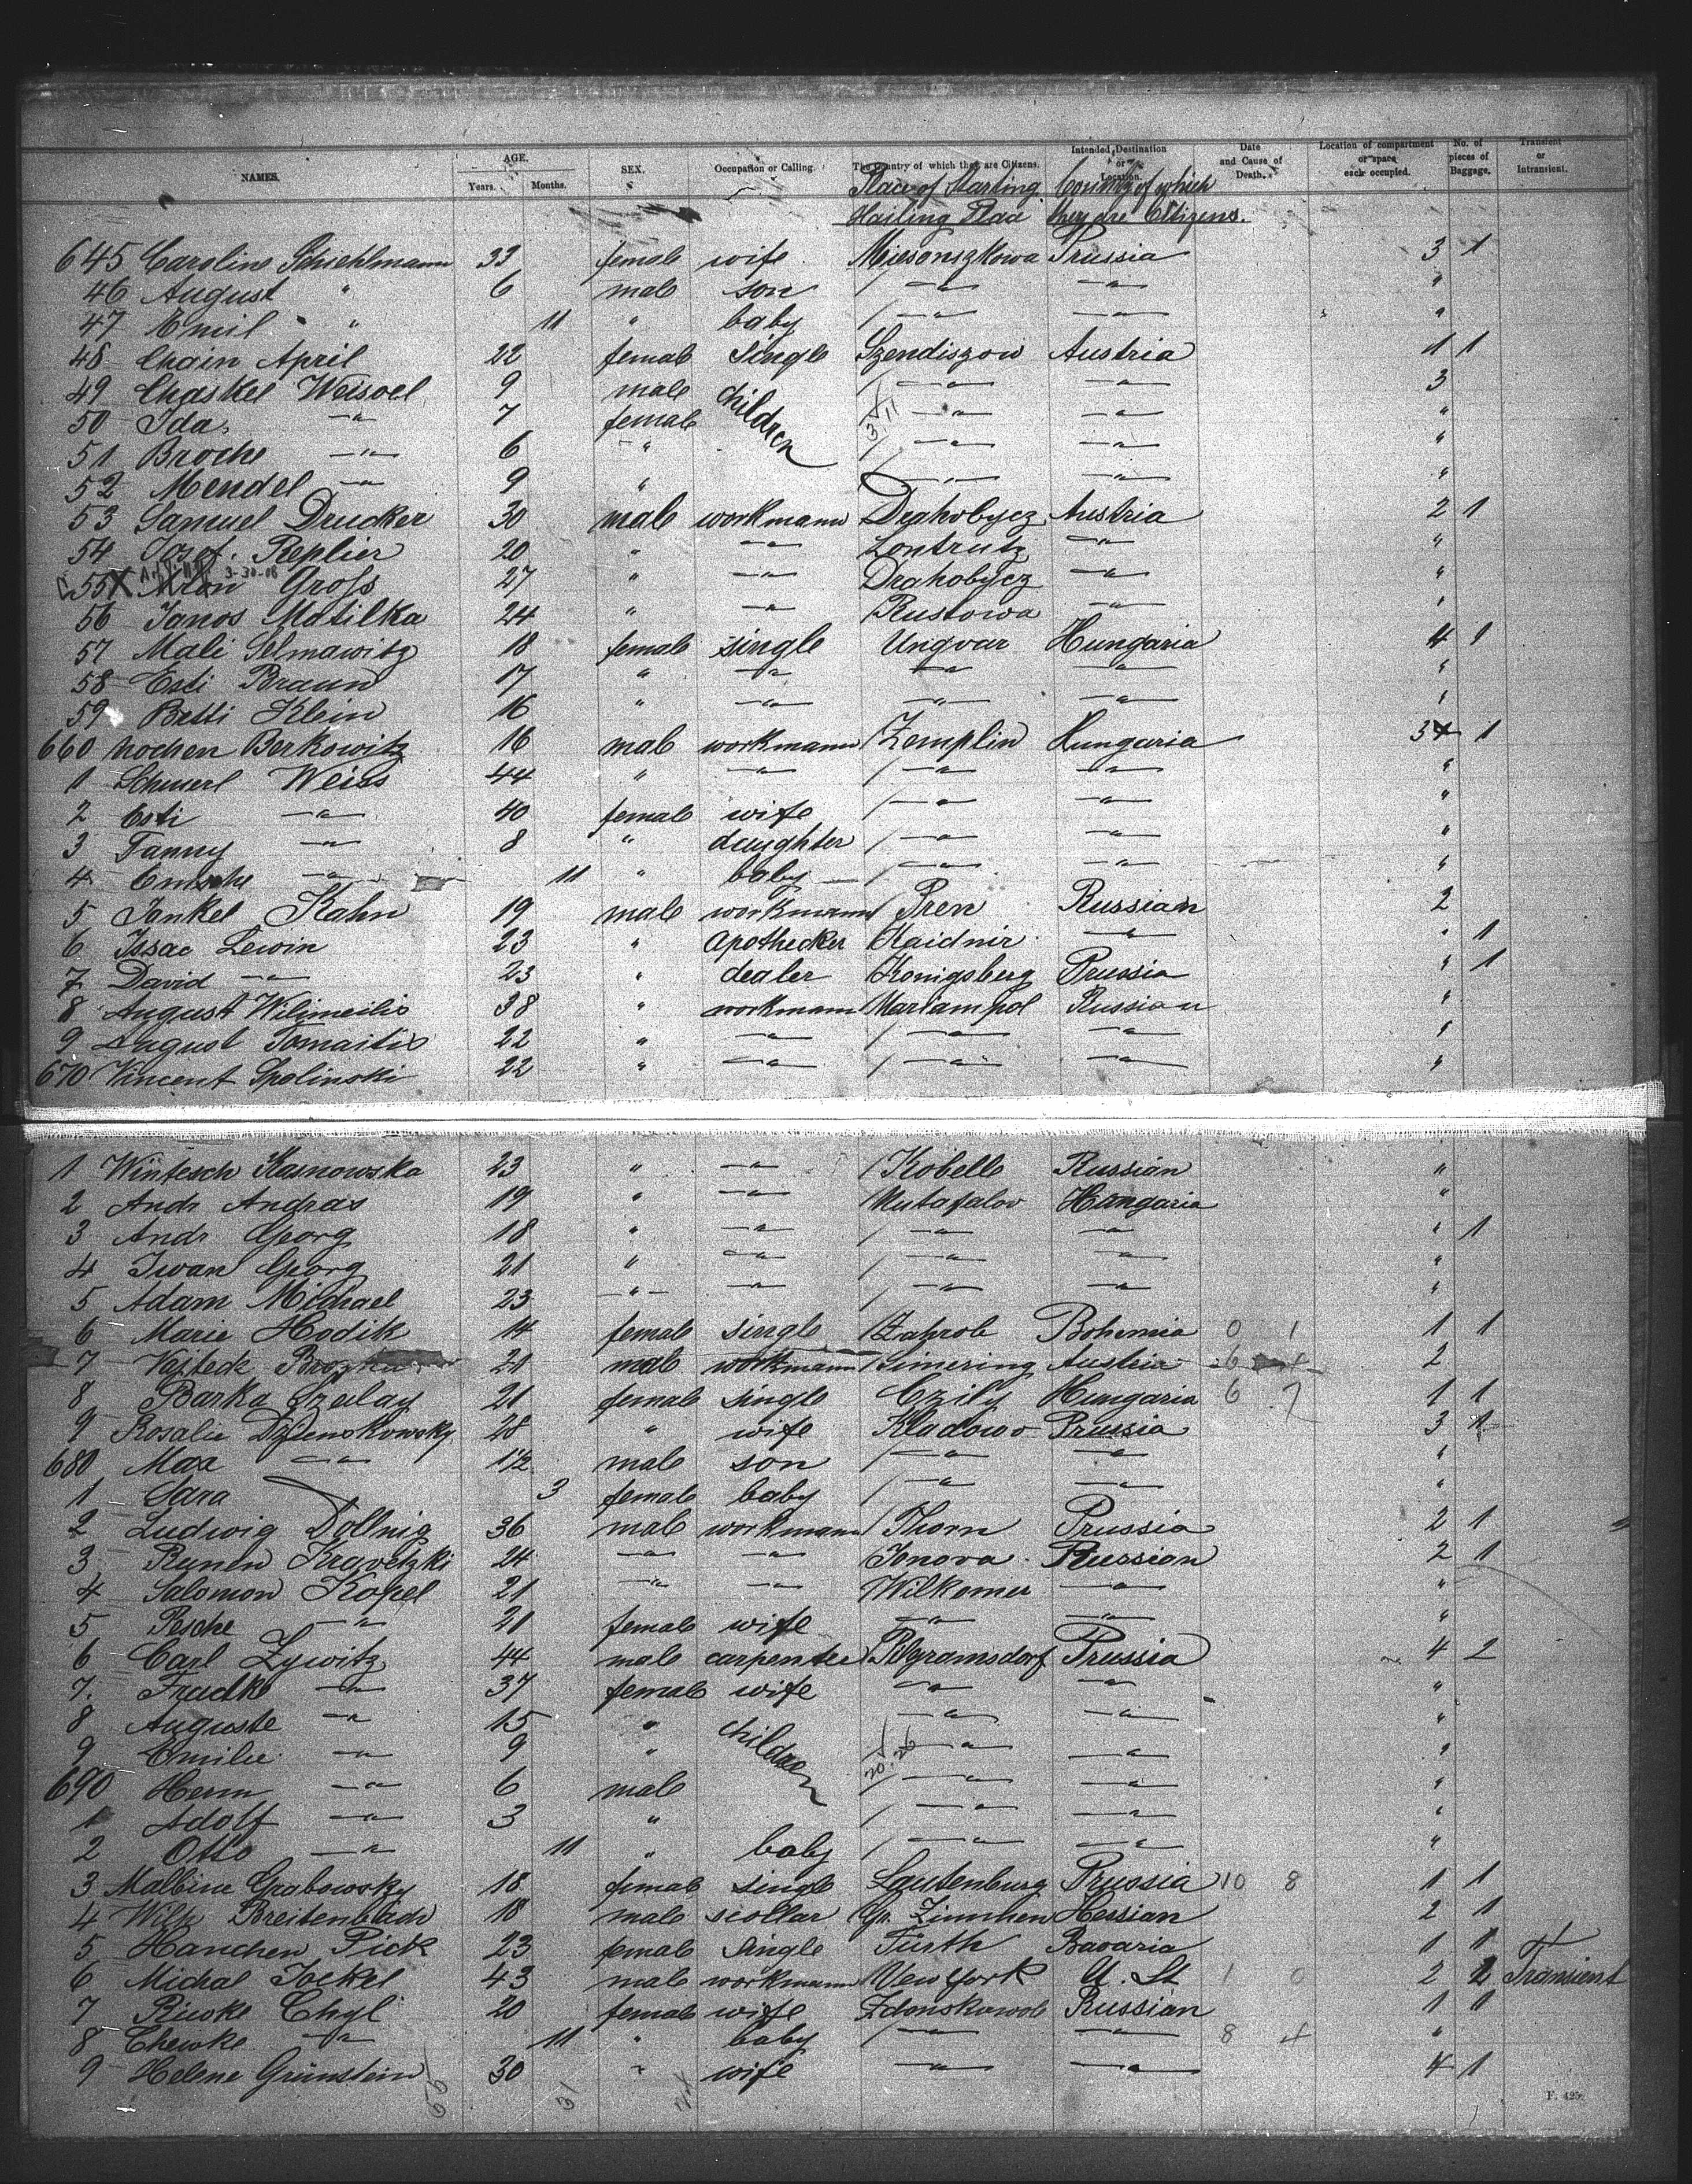 NAMES. AGE. Years. Months. SEX. Occupation or Calling. The Country of which they are Citizens. Intended Destination or Location. Date and Cause of Death. Location of compartment or space each occupied. No. of pieces of Baggage. Transient or Intransient.
Place of Starting. Country of which
Hailing Place they are Citizens.
645 Caroline Schiehlmann 33 female wife Prussia 3 1
46 August " 6 male son / —"— —"— "
47 Emil " 11 " baby / —"— —"— "
48 Chain April 22 female single Szendiszow Austria 1 1
49 Chaskel Weisoel 9 male children / —"— —"— 3
50 Ida —"— 7 female / —"— —"— "
51 Broche —"— 6 —"— / —"— —"— "
52 Mendel —"— 9 " —"— —"— "
53 Samuel Drucker 30 male workmann Drahobycz Austria 2 1
54 Josef Replier 20 " —"— Lontrutz —"— "
55 X Aron Gross 3-30-08 27 " —"— Drahobycz —"— "
56 Janos Matilka 24 " —"— Rustowa —"— "
57 Mali Selmawitz 18 female single Ungvar Hungaria 4 1
58 Esti Braun 17 " —"— —"— —"— "
59 Betti Klein 16 " —"— —"— —"— "
660 Nochen Berkowitz 16 male workmann Zemplin Hungaria 3 1
1 Schmerl Weiss 44 " —"— / —"— —"— "
2 Esti —"— 40 female wife / —"— —"— "
3 Fanny —"— 8 " daughter / —"— —"— "
4 —"— 11 " baby / —"— —"— "
5 Jankel Kahn 19 male workmann Pren Russian 2
6 Issac Lewin 23 " Apothecker Kaidnir —"— " 1
7 David —"— 23 " dealer Konigsberg Prussia " 1
8 August Wilimeilis 38 " workmann Mariampol Russian "
9 August Tomaitis 22 " —"— / —"— —"— "
670 Vincent Spolinski 22 " —"— / —"— —"— "
1 Wintesch Kasnowska 23 " —"— / Kobelle Russian "
2 Andr Andras 19 " —"— Mutafalov Hungaria "
3 Andr Georg 18 " —"— / —"— —"— " 1
4 Iwan Georg 21 " —"— / —"— —"— "
5 Adam Michael 23 —"— —"— / —"— —"— "
6 Marie Hodik 14 female single Zahrob Bohemia 0 1 1 1
7 21 male workmann Simering Austria 6 2
8 Barka Szalay 21 female single Czily Hungaria 6 7 1 1
9 Rosalie Dziemskowsky 28 " wife Kladowo Prussia 3 1
680 Max —"— 1/2 male son / —"— —"— "
1 Sara 3 female baby / —"— —"— "
2 Ludwig Dollnig 36 male workmann Thorn Prussia 2 1
3 Runen Kravetzki 24 —"— —"— Jonova Russian 2 1
4 Salomon Kopel 21 —"— —"— Wilkomer —"— "
5 Pesche —"— 21 female wife —"— —"— "
6 Carl Zywitz 44 male carpenter Pilgramsdorf Prussia 4 2
7 —"— 37 female wife —"— —"— "
8 Auguste —"— 15 " children —"— —"— "
9 Emilie —"— 9 " —"— —"— "
690 Herm —"— 6 male / —"— —"— "
1 Adolf —"— 3 " / —"— —"— "
2 Otto —"— 11 " baby / —"— —"— "
3 Malbine Grabowsky 18 female single Lautenburg Prussia 10 8 1 1
4 Wilh Breitenbach 18 male scollar Gr. Zimmhen Hessian 2 1
5 Hanchen Pick 23 female single Fürth Bavaria 1 1
6 Michal Jockel 43 male workmann New York U. St 1 0 2 2 Transient
7 Riwke Chgl 20 female wife Zdonskawole Russian 1 1
8 Chewke —"— 11 " baby / —"— —"— 8 4 "
9 Helene Grünstein 30 " wife —"— —"— 4 1
F. 425